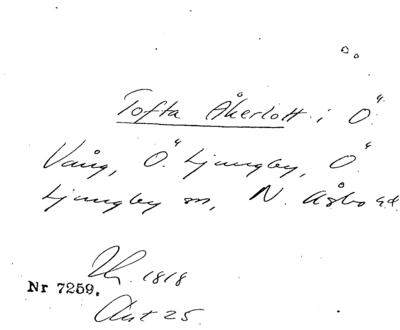 Tofta Åkerlott i Ö.
Vång, Ö. Ljungby, Ö.
Ljungby sn, N. Åsbo hd.
1818
Nr 7259.
Akt 25